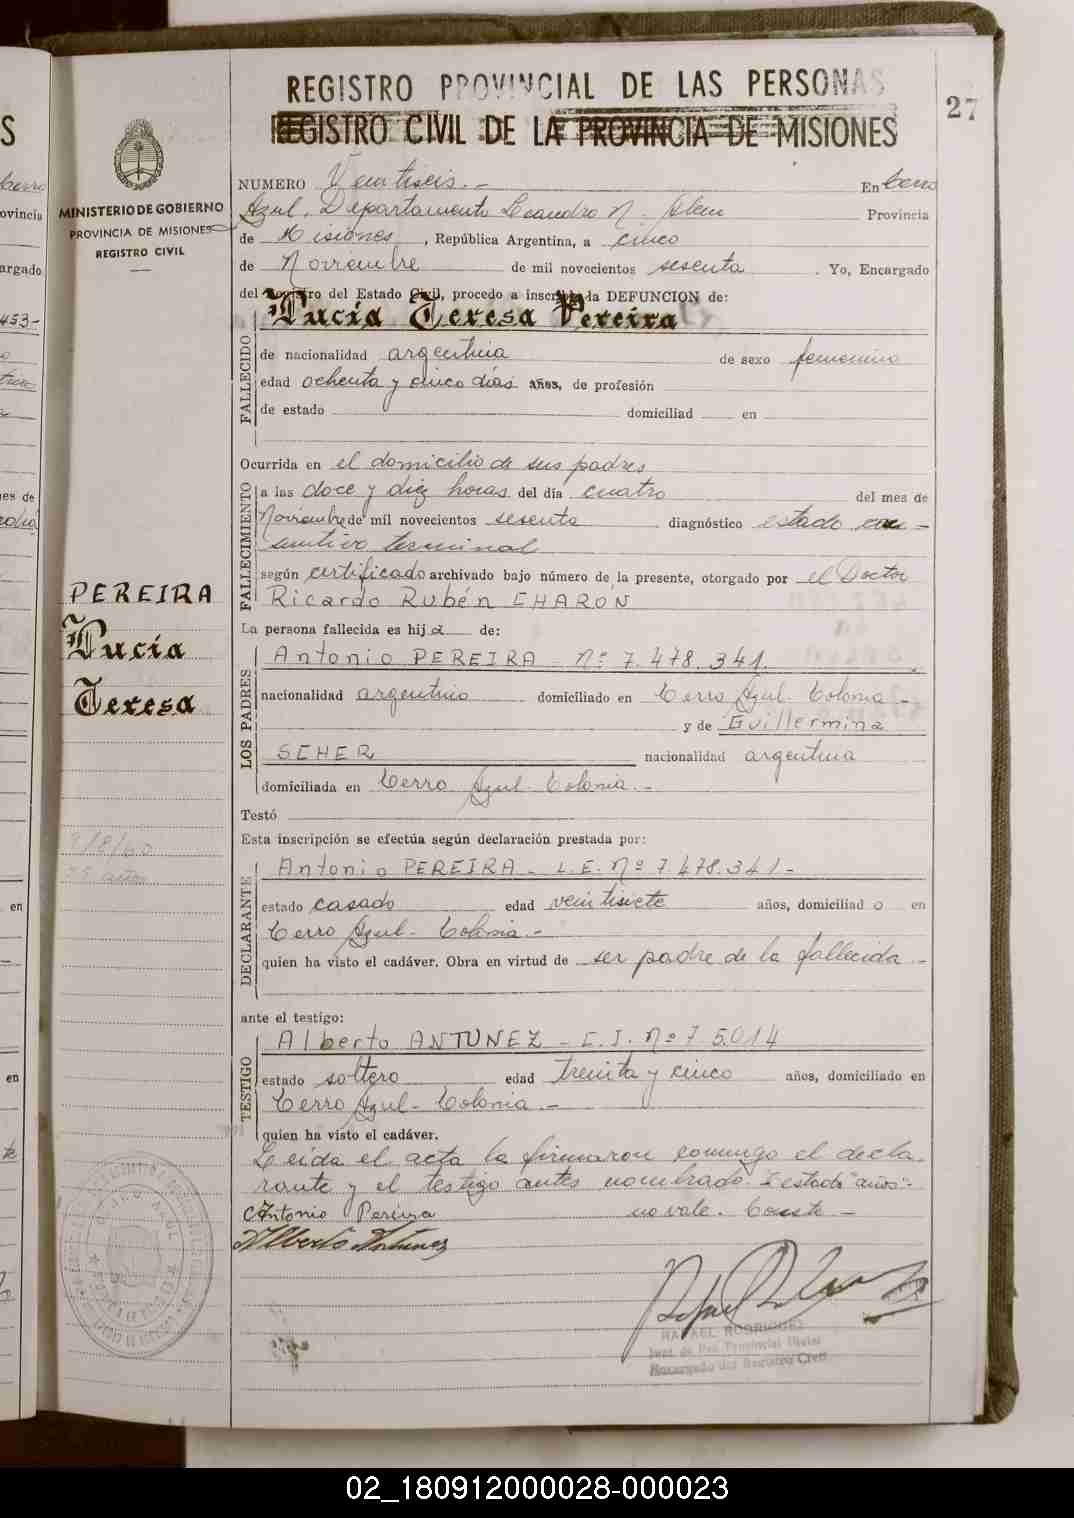 REGISTRO PROVINCIAL DE LAS PERSONAS
REGISTRO CIVIL DE LA PROVINCIA DE MISIONES
27
MINISTERIO DE GOBIERNO
PROVINCIA DE MISIONES
REGISTRO CIVIL
NUMERO Veintiseis.- En Cerro
Azul, Departamento Leandro N. Alem Provincia
de Misiones, República Argentina, a cinco
de Noviembre de mil novecientos sesenta. Yo, Encargado
del Registro del Estado Civil, procedo a inscribir la DEFUNCION de:
Lucía Teresa Pereira
FALLECIDO
de nacionalidad argentina de sexo femenino
edad ochenta y cinco días años, de profesión
de estado domiciliad en
Ocurrida en el domicilio de sus padres
FALLECIMIENTO
a las doce y diez horas del día cuatro del mes de
Noviembre de mil novecientos sesenta diagnóstico estado con-
suntivo terminal
según certificado archivado bajo número de la presente, otorgado por el Doctor
Ricardo Rubén CHARON
La persona fallecida es hija de:
LOS PADRES
Antonio PEREIRA Nº 7.478.341.
nacionalidad argentino domiciliado en Cerro Azul-Colonia-
y de Guillermina
SEHER nacionalidad argentina
domiciliada en Cerro Azul-Colonia.-
Testó
Esta inscripción se efectúa según declaración prestada por:
DECLARANTE
Antonio PEREIRA - L.E. Nº 7.478.341-
estado casado edad veintisiete años, domiciliado en
Cerro Azul-Colonia-
quien ha visto el cadáver. Obra en virtud de ser padre de la fallecida-
ante el testigo:
TESTIGO
Alberto ANTUNEZ - C.I. Nº 75.014
estado soltero edad treinta y cinco años, domiciliado en
Cerro Azul-Colonia.-
quien ha visto el cadáver.
Leída el acta la firmaron conmigo el decla-
rante y el testigo antes nombrado. Testado "años"-
no vale. Conste-
Antonio Pereira
Alberto Antunez
RAFAEL RODRIGUEZ
Encargado del Registro Civil
PEREIRA
Lucía
Teresa
02_180912000028-000023